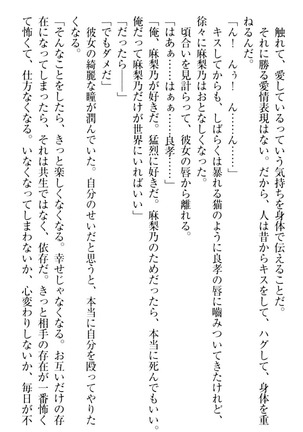 触れて、愛しているっていう気持ちを身体で伝えることだ。
それに勝る愛情表現はない。だから、人は昔からキスをして、ハグして、身体を重
ねるんだ。
「ん！　んぅ！　ん……ん……」
キスしてからも、しばらくは暴れる猫のように良孝の唇に嚙みついてきたけれど、
徐々に麻梨乃はおとなしくなった。
頃合いを見計らって、彼女の唇から離れる。
「はあぁ……はぁ……良孝……」
「俺、麻梨乃が好きだ。猛烈に好きだ。麻梨乃のためだったら、本当に死んでもいい。
俺だって麻梨乃だけが世界にいればいい」
「だったら――」
「でもダメだ」
彼女の綺麗な瞳が潤んでいた。自分のせいだと思うと、本当に自分を殴ってやりた
くなる。
「そんなことをしたら、きっと楽しくなくなる。幸せじゃなくなる。お互いだけの存
在になってしまったら、それは共生ではなく、依存だ。きっと相手の存在が一番怖く
て怖くて、仕方なくなる。いなくなってしまわないか、心変わりしないか、毎日が不